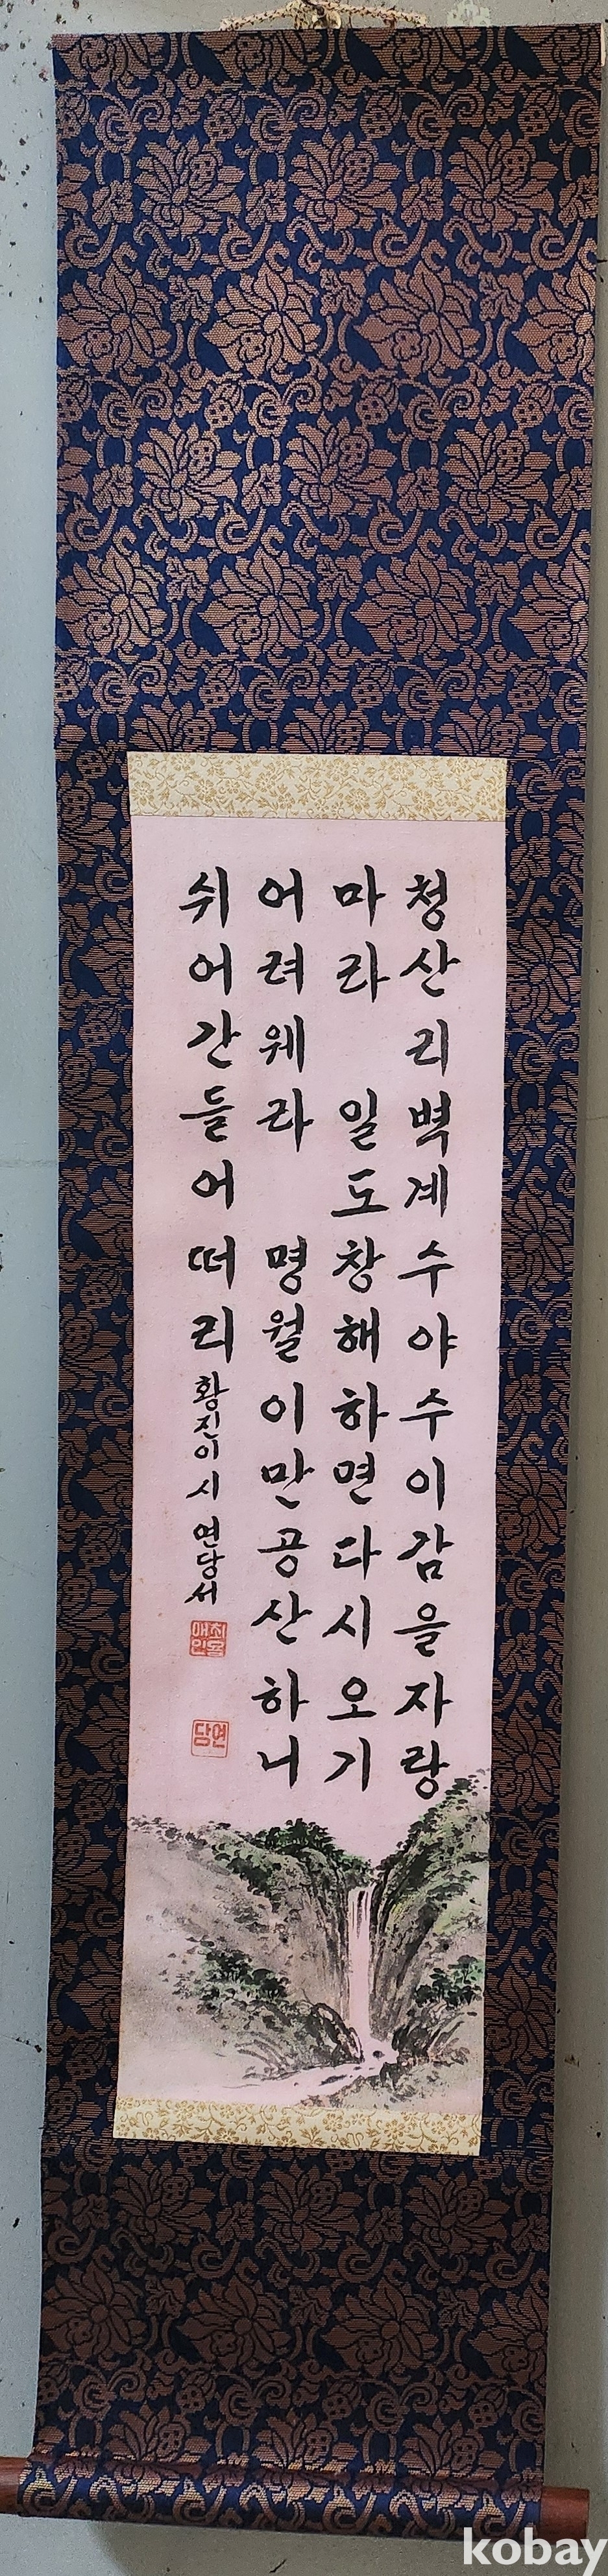 청산리벽계수야수이감을자랑
마라 일도창해하면다시오기
어려웨라 명월이만공산하니
쉬어간들어떠리
황진이시 연당서
연담
kobay